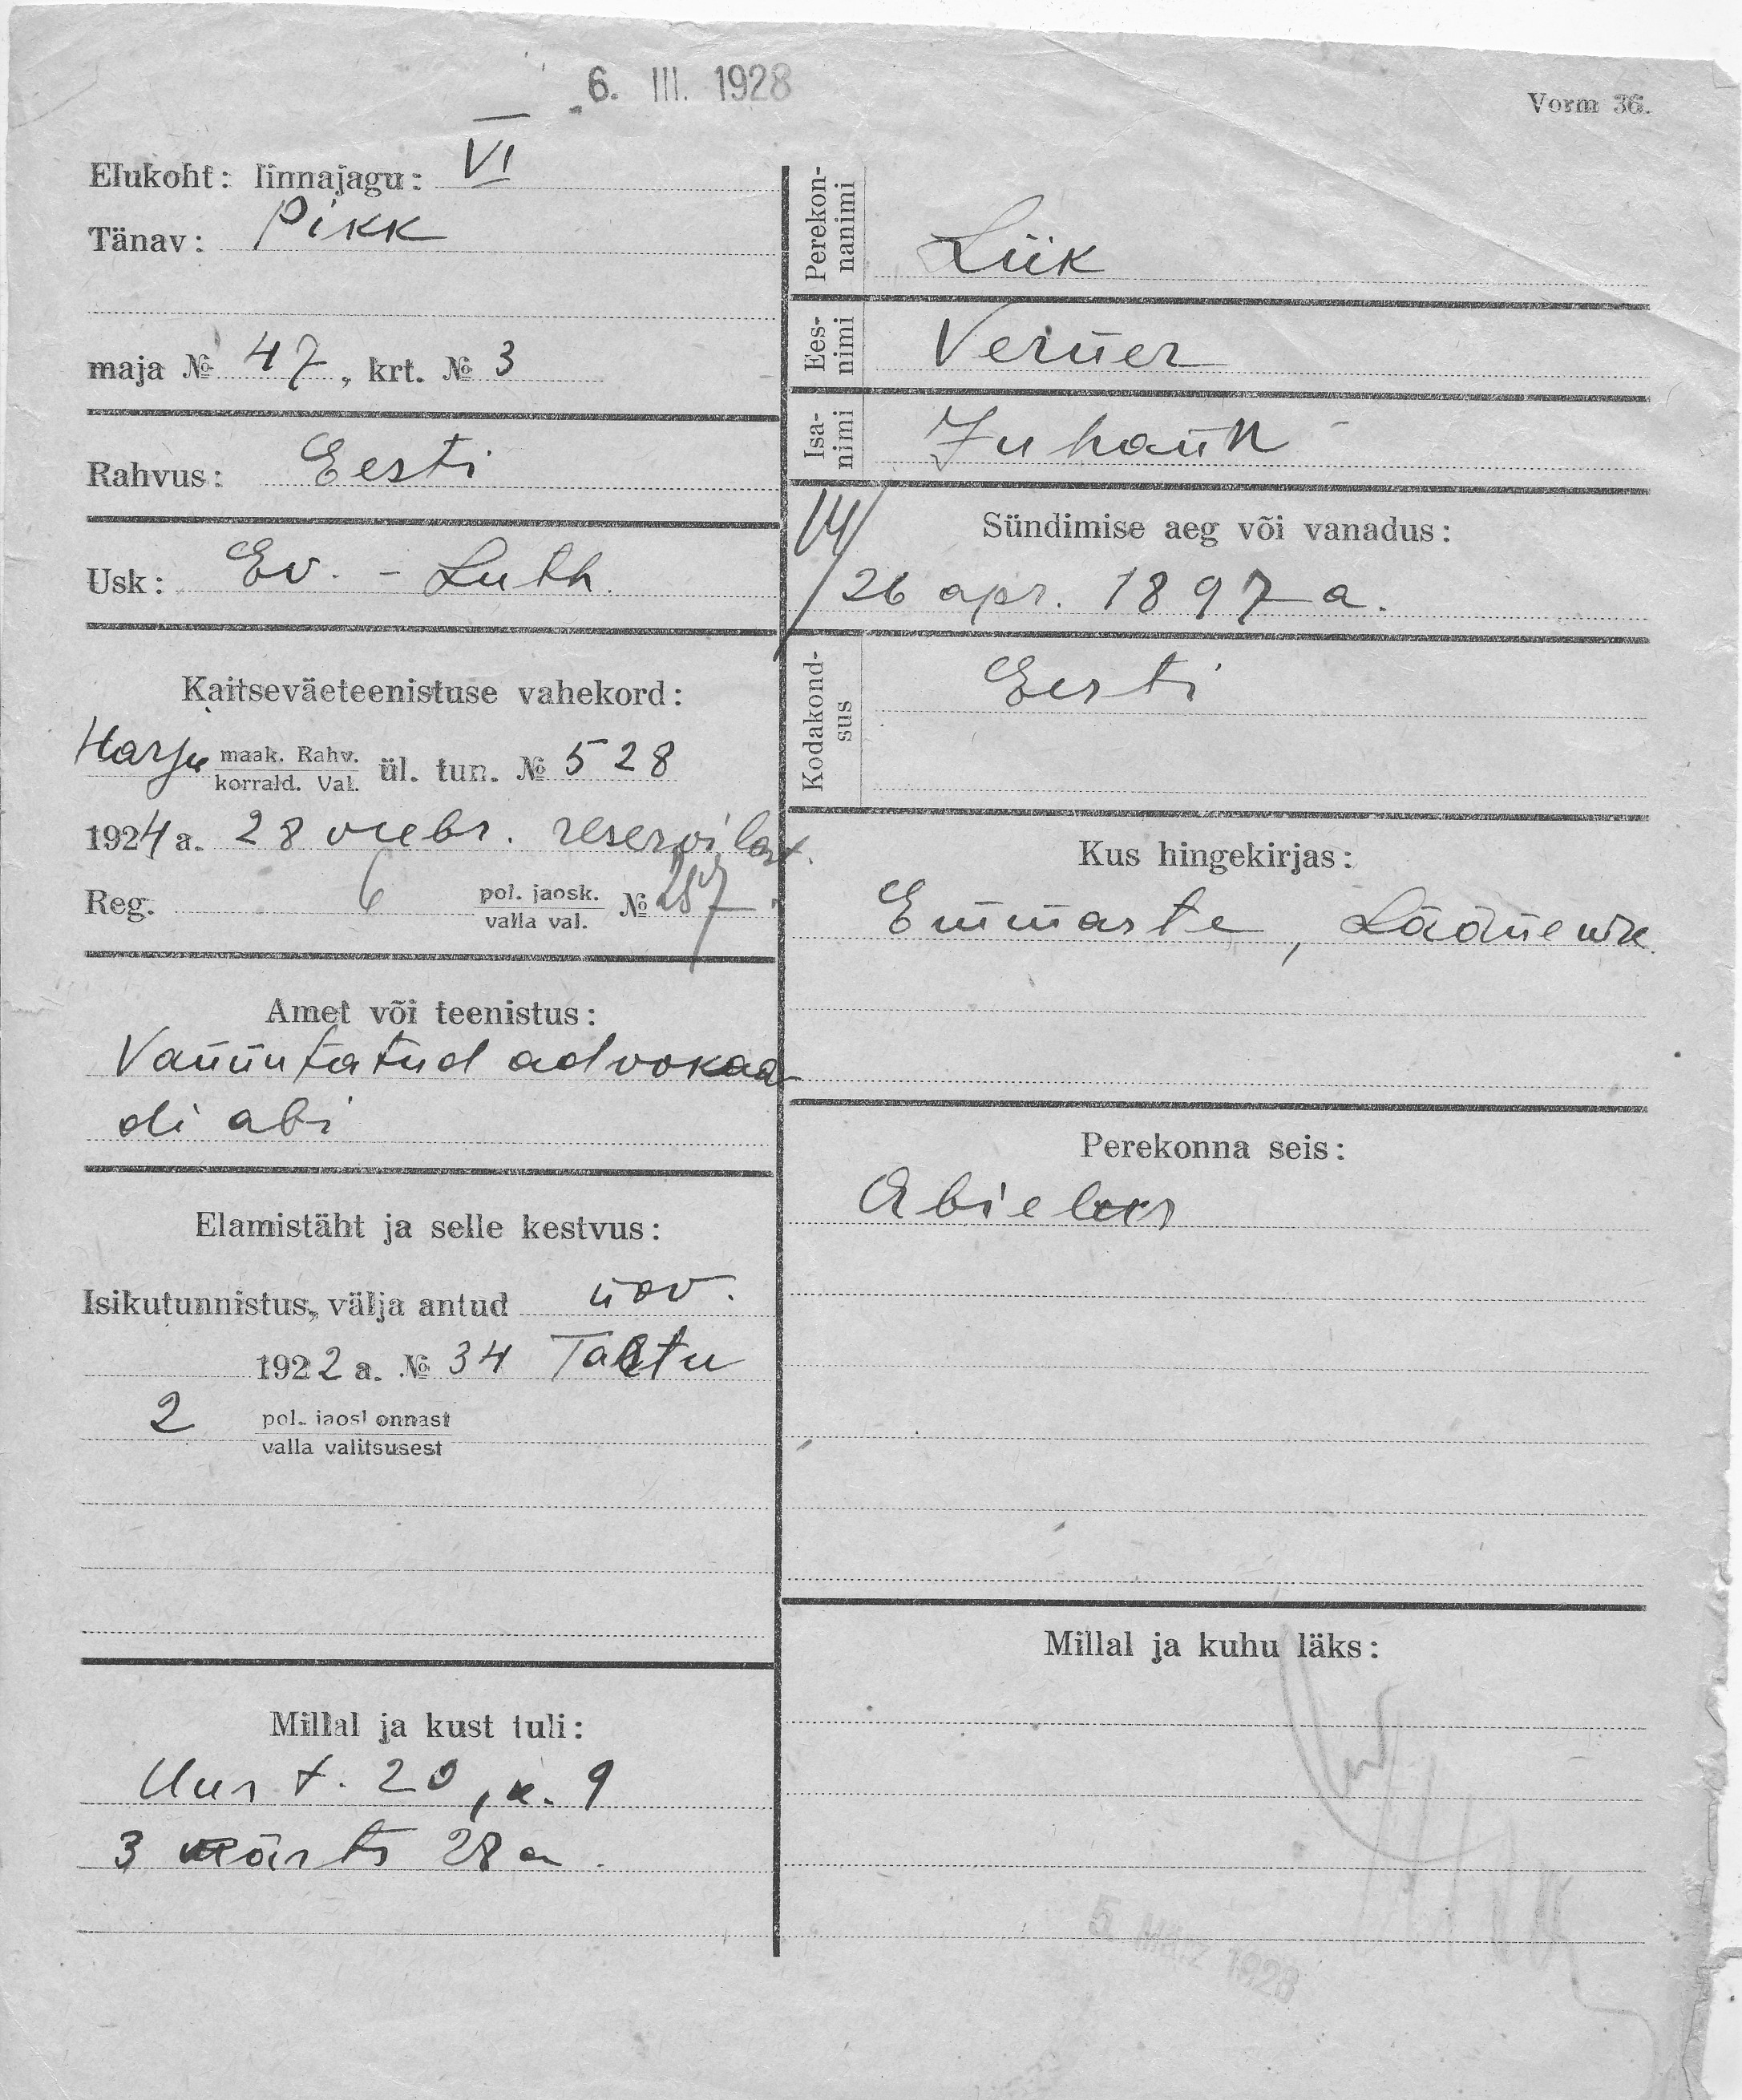 6. III. 1928
Vorm 36.
Elukoht: linnajagu: VI
Tänav: Pikk
maja № 47, krt. № 3
Rahvus: Eesti
Usk: Ev. - Luth.
Kaitseväeteenistuse vahekord:
Harju maak. Rahv. korrald. Val. ül. tun. № 528
1924 a. 28 reservilast.
Reg. 6 pol. jaosk. valla val. № 257
Amet või teenistus:
Vannutatud advokaa-
di abi
Elamistäht ja selle kestvus:
Isikutunnistus, välja antud nov.
1922 a. № 34 Tartu
2 pol. jaoskonnast
valla valitsusest
Millal ja kust tuli:
Uus t. 20, k. 9
3 märts 28 a.
Perekon-
nanimi
Liik
Ees-
nimi
Verner
Isa-
nimi
Juhan
Sündimise aeg või vanadus:
14/26 apr. 1897 a.
Kodakond-
sus
Eesti
Kus hingekirjas:
Emmaste, Läänem.
Perekonna seis:
Abielus
Millal ja kuhu läks:
5. März 1928